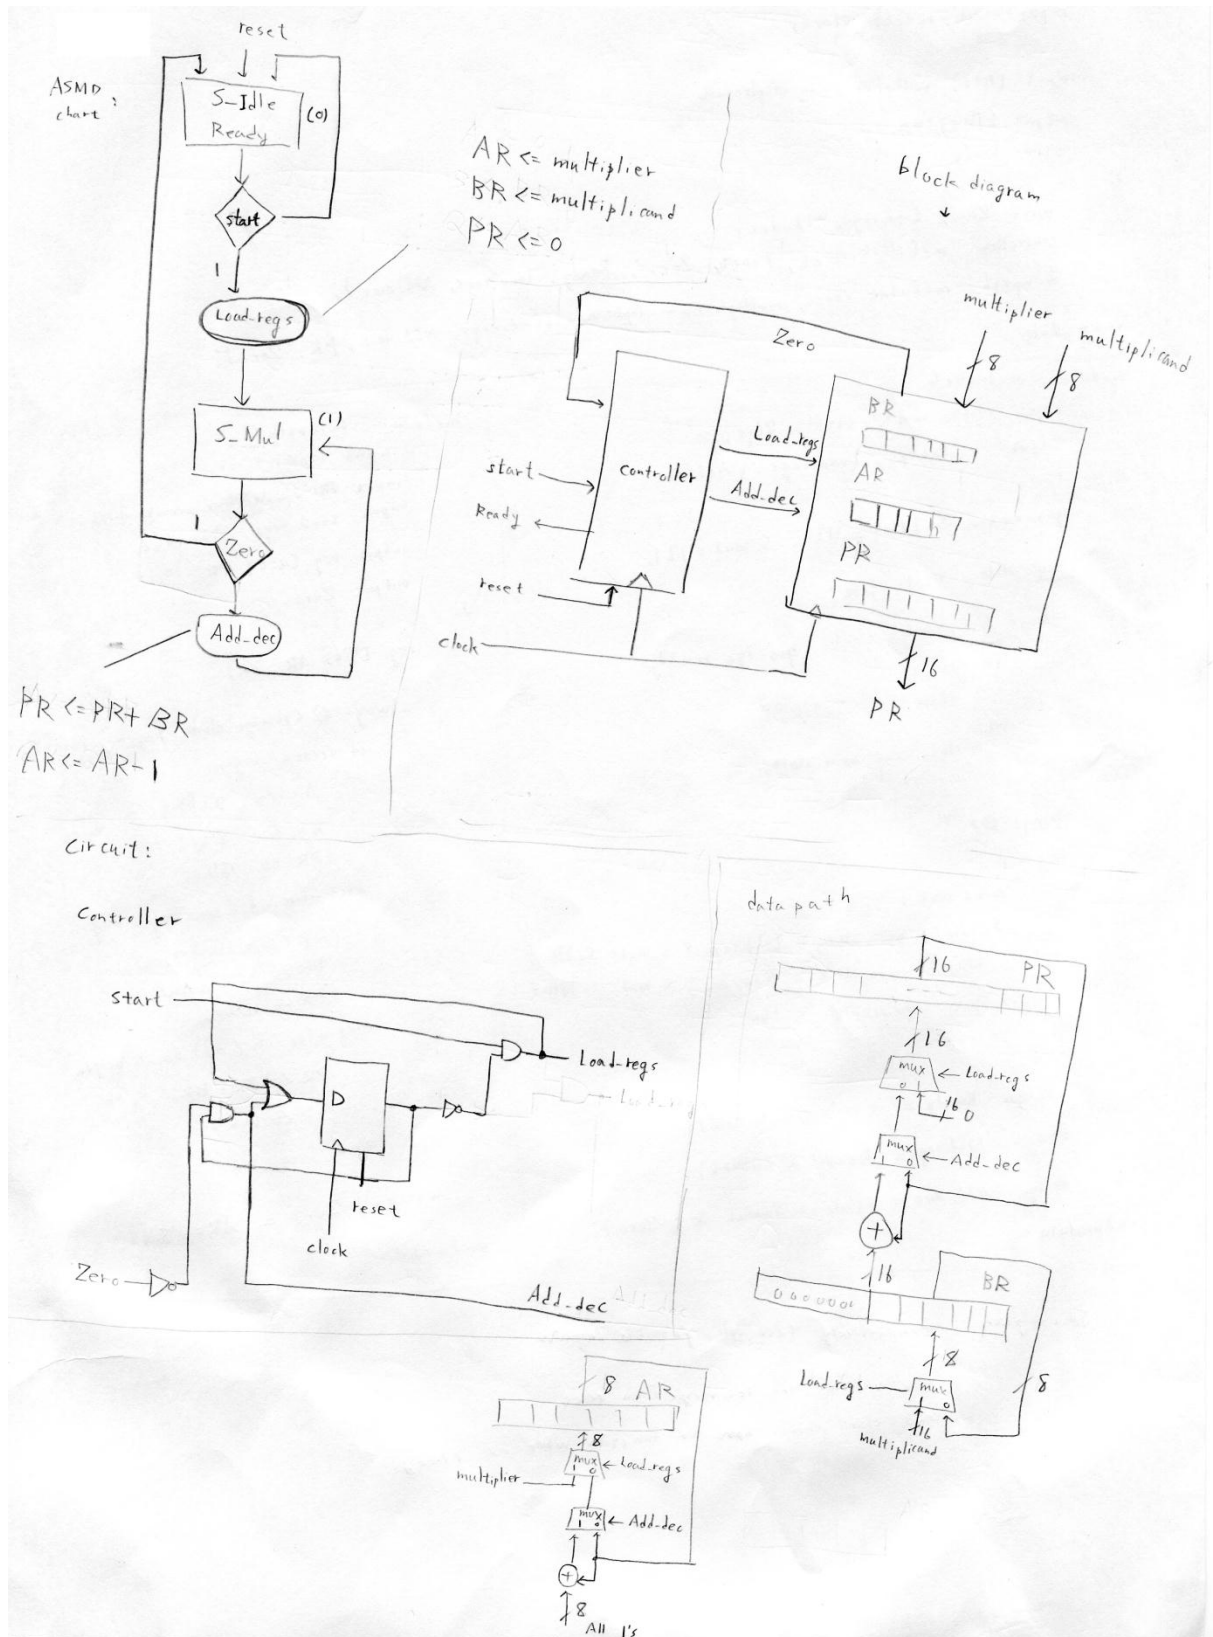 reset
ASMD :
chart
S_Idle
Ready
(0)
start
1
Load-regs
S_Mul
(1)
1
Zero
Add_dec
PR <= PR + BR
AR <= AR - 1
AR <= multiplier
BR <= multiplicand
PR <= 0
block diagram
multiplier
multiplicand
8
8
Zero
start
Ready
reset
clock
controller
Load-regs
Add-dec
BR
AR
PR
16
PR
Circuit:
Controller
start
D
Load-regs
reset
clock
Zero
Add_dec
datapath
16
PR
16
mux
0 1
Load-regs
16
0
mux
1 0
Add-dec
+
16
BR
8
Load-regs
mux
1 0
8
16
multiplicand
8 AR
8
multiplier
mux
1 0
Load-regs
mux
1 0
Add-dec
+
8
All 1's